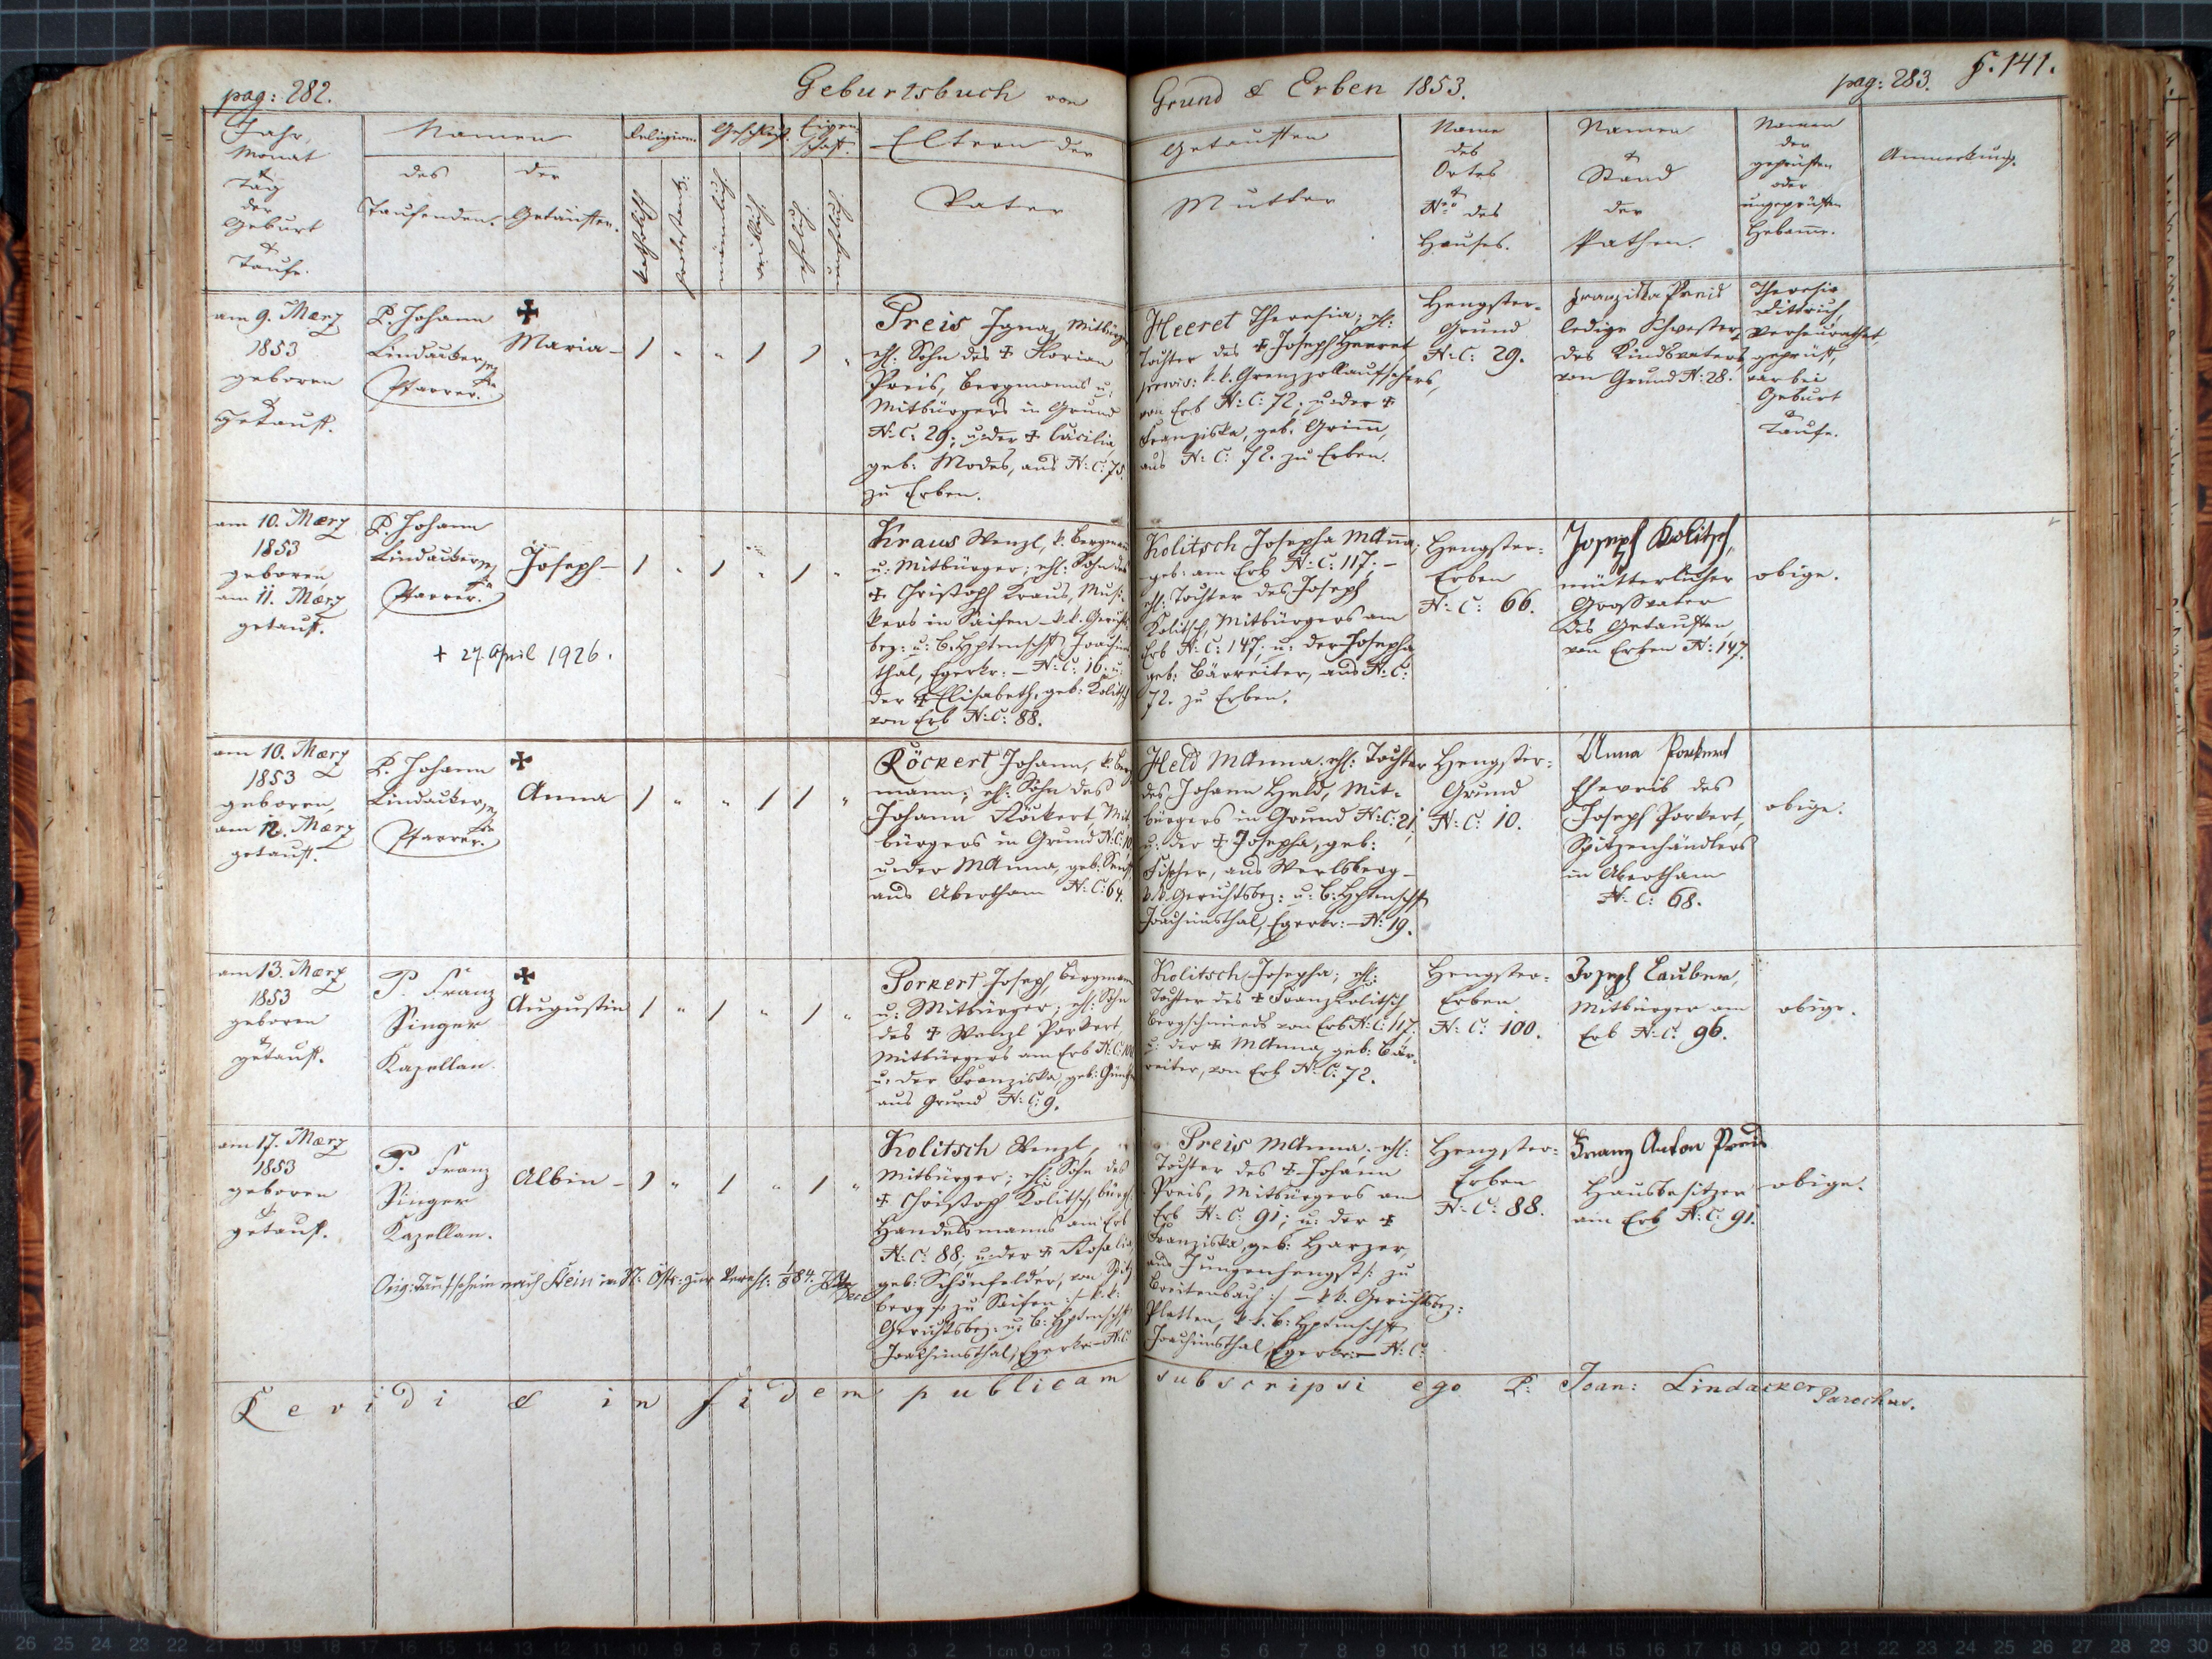 pag: 282.
Geburtsbuch von
Grund & Erben 1853.
pag: 283.
F. 141.
Jahr,
Monat
&
Tag
der
Geburt
&
Taufe.
Namen
des
Taufenden.
der
Getauften.
Religion
katholisch
protestant:
Geschlecht.
männlich
weiblich
Eigen-
schaft.
ehelich
unehelich
Eltern der
Vater
Getauften
Mutter
Name
des
Ortes
&
Nro des
Hauses.
Namen
&
Stand
der
Pathen.
Namen
der
geprüften
oder
ungeprüften
Hebamme.
Anmerkung.
am 9. Maerz
1853
geboren
&
getauft.
P. Johann
Lindacker
Pfarrer.
✠
Maria –
1 " " 1 1 "
Preis Ignaz Mitbürger
ehl: Sohn des ✠ Florian
Preis, Bergmanns u:
Mitbürgers in Grund
N: C: 29; u: der ✠ Cäcilia,
geb: Modes, aus N: C: 75.
zu Erben.
Heeret Theresia; ehl:
Tochter des ✠ Joseph Heeret
k. k. Grenzzollaufsehers,
von Erb N: C: 72; u: der ✠
Franziska, geb. Grimm,
aus N: C: 72. zu Erben.
Hengster-
Grund
N: C: 29.
Franziska Preis
ledige Schwester
des Kindsvaters,
von Grund N: 28.
Theresia
Dittrich,
verheurathet
geprüft,
war bei
Geburt
&
Taufe.
am 10. Maerz
1853
geboren
am 11. Maerz
getauft.
P. Johann
Lindacker
Pfarrer.
Joseph –
1 " 1 " 1 "
+ 27. April 1926.
Kraus Wenzl, k: Bergmann
u: Mitbürger; ehl: Sohn des
✠ Christoph Kraus, Musi-
kers in Saifen – k. k. Gerichts-
bez: u: B. Hptmschft Joachims-
thal, Egerkr: – N: C: 16. u:
der ✠ Elisabeth, geb: Kolitsch
von Erb N: C: 88.
Kolitsch Josepha MAnna,
geb: am Erb N: C: 117; –
ehl: Tochter des Joseph
Kolitsch, Mitbürgers am
Erb N: C: 147; u: der Josepha
geb: Bärreiter, aus N: C:
72. zu Erben.
Hengster-
Erben
N: C: 66.
Joseph Kolitsch,
mütterlicher
Großvater
des Getauften,
von Erben N: 147.
obige.
am 10. Maerz
1853
geboren,
am 12. Maerz
getauft.
P. Johann
Lindacker
Pfarrer.
✠
Anna
1 " " 1 1 "
Röckert Johann, k: Berg-
mann; ehl: Sohn des
Johann Röckert, Mit-
bürgers in Grund N: C: 10.
u: der MAnna, geb:
aus Abertham N: C: 64.
Held MAnna, ehl: Tochter
des Johann Held, Mit-
bürgers in Grund N: C: 21;
u: der ✠ Josepha, geb:
Fischer, aus Werlsberg –
k. k. Gerichtsbez: u: B: Hptmschft
Joachimsthal, Egerkr: – N: 19.
Hengster-
Grund
N: C: 10.
Anna Porkert
Eheweib des
Joseph Porkert,
Spitzenhändlers
in Abertham
N: C: 68.
obige.
am 13. Maerz
1853
geboren
&
getauft.
P. Franz
Singer
Kapellan.
✠
Augustin
1 " 1 " 1 "
Porkert Joseph, Bergmann
u: Mitbürger; ehl: Sohn
des ✠ Wenzl Porkert,
Mitbürgers am Erb N: C: 100
u: der Franziska, geb: Günther
aus Grund N: C: 9.
Kolitsch Josepha; ehl:
Tochter des ✠ Franz Kolitsch
Bergschmieds von Erb N: C: 117.
u: der ✠ MAnna, geb: Bär-
reiter, von Erb N: C: 72.
Hengster-
Erben
N: C: 100.
Joseph Lauber,
Mitbürger am
Erb N: C: 96.
obige.
am 17. Maerz
1853
geboren
&
getauft.
P. Franz
Singer
Kapellan.
Albin –
1 " 1 " 1 "
Orig: Taufschein nach Stein in N: Östr: zur Vereh:
Kolitsch Wenzl,
Mitbürger; ehl: Sohn des
✠ Christoph Kolitsch, bürgl:
Handelsmanns am Erb
N: C: 88; u: der ✠ Rosalia
geb: Schönfelder, von Spitz-
berg /: zu Saifen :/ – k. k.
Gerichtsbez: u: B: Hptmschft
Joachimsthal, Egerkr: – N: C:
Preis MAnna, ehl:
Tochter des ✠ Johann
Preis, Mitbürgers am
Erb N: C: 91; u: der ✠
Franziska, geb: Harzer,
aus Jungenhengst /: zu
Breitenbach :/ – k. k. Gerichtsbez:
Platten, k. k. B: Hptmschft
Joachimsthal, Egerkr: – N: C:
Hengster-
Erben
N: C: 88.
Franz Anton Preis
Hausbesitzer
am Erb N: C: 91.
obige.
Revidi & in fidem publicam subscripsi ego P: Joan: Lindacker Parochus.